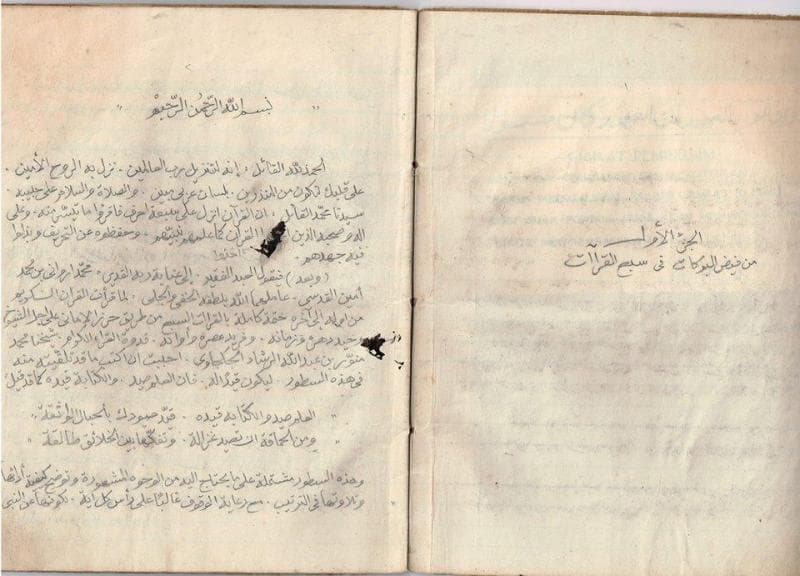 الجزء الأول
من فيض البركات في سبع القرآات
بسم الله الرحمن الرحيم
الحمد لله القائل، إنه لتنزيل رب العالمين. نزل به الروح الأمين.
على قلبك لتكون من المنذرين. بلسان عربي مبين. والصلاة والسلام على حبيبه
سيدنا محمد القائل، ان القرآن انزل على سبعة احرف فاقرءوا ما تيسر منه. وعلى
اله وصحبه الذين القرآن كما علمهم نبيهم. وحفظوه عن التحريف وبذلوا
فيه جهدهم.
(وبعد) فيقول العبد الفقير. إلى عناية ربه القدير. محمد ارواني بن محمد
أمين القدسي. عاملهما الله بلطفه الخفي والجلي. لما قرأت القرآن الكريم
من اوله إلى آخره ختمة كاملة بالقرآت السبع من طريق حرز الأماني على يد الشيوخ
وحيد دهره وزمانه. وفريد عصره وأوانه. قدوة القراء الكرام. شيخنا محمد
منور بن عبد الله الرشاد الجكجاوي. احببت ان اكتب ما قد تلقيته منه
في هذه السطور. ليكون قيدًا له. فان العلم صيد. والكتابة قيده كما قد قيل
العلم صيد والكتابة قيده. قيد صيودك بالحبال الواثقة
ومن الحماقة ان تصيد غزالة. وتفكها بين الخلائق طالقة
وهذه السطور مشتملة على ما يحتاج اليه من الوجوه المشهورة وتوضيح كيفية أدائها
وتلاوتها في الترتيب. مع رعاية الوقوف غالبًا على رأس كل اية. لكونها عن النبي